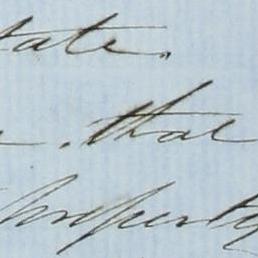 tate.
. that
Property